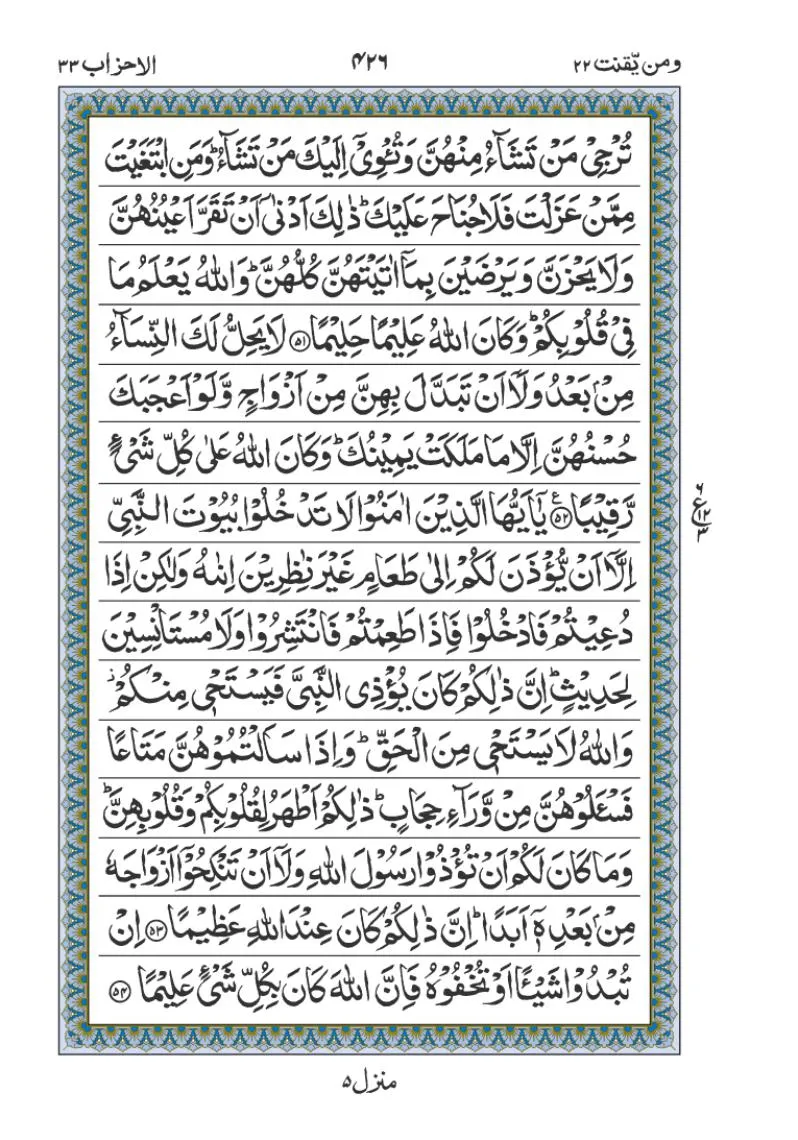 ومن يّقنت ٢٢
۴۲۶
الاحزاب ٣٣
تُرْجِیْ مَنْ تَشَآءُ مِنْهُنَّ وَتُـْٔوِیْۤ اِلَیْكَ مَنْ تَشَآءُ ؕ وَمَنِ ابْتَغَیْتَ
مِمَّنْ عَزَلْتَ فَلَا جُنَاحَ عَلَیْكَ ؕ ذٰلِكَ اَدْنٰۤی اَنْ تَقَرَّ اَعْیُنُهُنَّ
وَلَا یَحْزَنَّ وَیَرْضَیْنَ بِمَاۤ اٰتَیْتَهُنَّ كُلُّهُنَّ ؕ وَاللّٰهُ یَعْلَمُ مَا
فِیْ قُلُوْبِكُمْ ؕ وَكَانَ اللّٰهُ عَلِیْمًا حَلِیْمًا ﴿۵۱﴾ لَا یَحِلُّ لَكَ النِّسَآءُ
مِنْۢ بَعْدُ وَلَاۤ اَنْ تَبَدَّلَ بِهِنَّ مِنْ اَزْوَاجٍ وَّلَوْ اَعْجَبَكَ
حُسْنُهُنَّ اِلَّا مَا مَلَكَتْ یَمِیْنُكَ ؕ وَكَانَ اللّٰهُ عَلٰی كُلِّ شَیْءٍ
رَّقِیْبًا ﴿۵۲﴾ ع یٰۤاَیُّهَا الَّذِیْنَ اٰمَنُوْا لَا تَدْخُلُوْا بُیُوْتَ النَّبِیِّ
اِلَّاۤ اَنْ یُّؤْذَنَ لَكُمْ اِلٰی طَعَامٍ غَیْرَ نٰظِرِیْنَ اِنٰىهُ وَلٰكِنْ اِذَا
دُعِیْتُمْ فَادْخُلُوْا فَاِذَا طَعِمْتُمْ فَانْتَشِرُوْا وَلَا مُسْتَاْنِسِیْنَ
لِحَدِیْثٍ ؕ اِنَّ ذٰلِكُمْ كَانَ یُؤْذِی النَّبِیَّ فَیَسْتَحْیٖ مِنْكُمْ ؗ
وَاللّٰهُ لَا یَسْتَحْیٖ مِنَ الْحَقِّ ؕ وَاِذَا سَاَلْتُمُوْهُنَّ مَتَاعًا
فَسْـَٔلُوْهُنَّ مِنْ وَّرَآءِ حِجَابٍ ؕ ذٰلِكُمْ اَطْهَرُ لِقُلُوْبِكُمْ وَقُلُوْبِهِنَّ ؕ
وَمَا كَانَ لَكُمْ اَنْ تُؤْذُوْا رَسُوْلَ اللّٰهِ وَلَاۤ اَنْ تَنْكِحُوْۤا اَزْوَاجَهٗ
مِنْۢ بَعْدِهٖۤ اَبَدًا ؕ اِنَّ ذٰلِكُمْ كَانَ عِنْدَ اللّٰهِ عَظِیْمًا ﴿۵۳﴾ اِنْ
تُبْدُوْا شَیْـًٔا اَوْ تُخْفُوْهُ فَاِنَّ اللّٰهَ كَانَ بِكُلِّ شَیْءٍ عَلِیْمًا ﴿۵۴﴾
۶
ع ۱۲
۳
منزل ۵